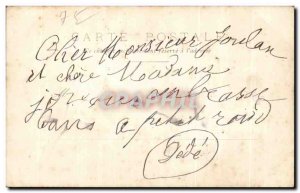 CARTE POSTALE
Cher Monsieur Jordan
et chère Madame
je vous embrasse
dans a petit rond
Dédé